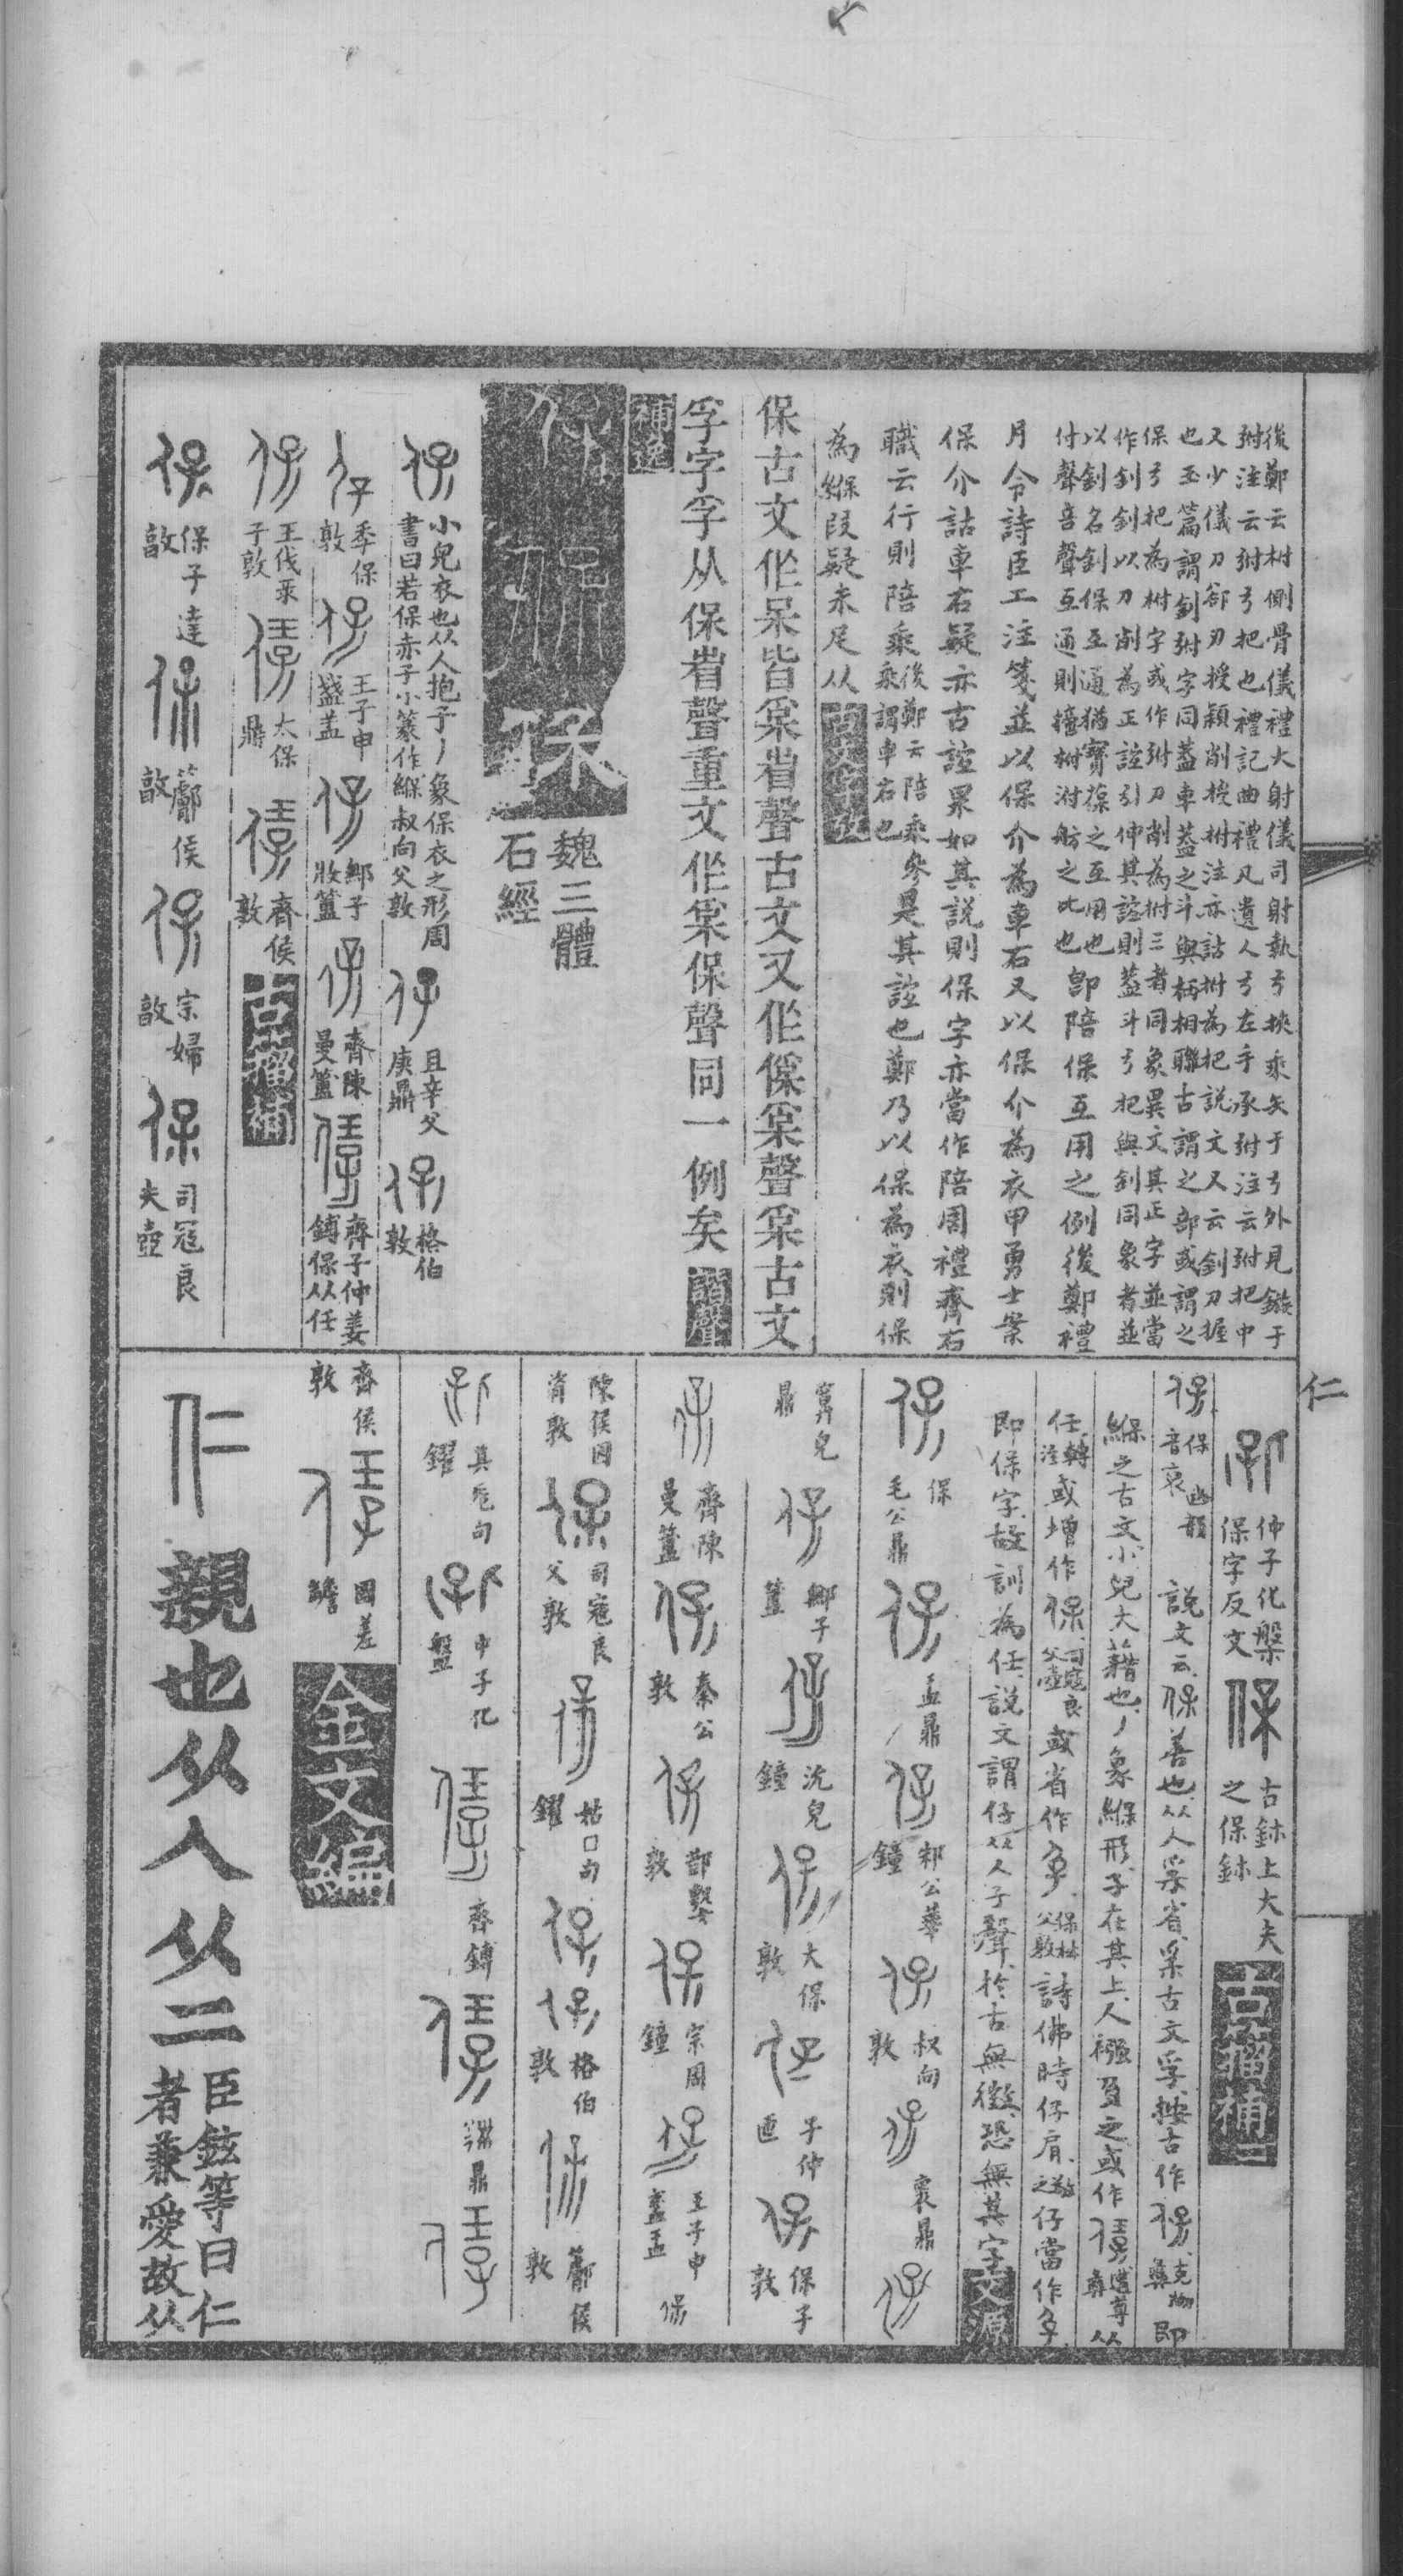 後鄭云柎側骨儀禮大射儀司射執弓挾乘矢于弓外見鏃于
弣注云弣弓把也禮記曲禮凡遺人弓左手承弣注云弣把中
又少儀刀卻刃授穎削授柎注亦詁柎為把說文又云釗刀握
也玉篇謂釗弣字同蓋車蓋之斗與柄相聯古謂之部或謂之
保弓把為柎字或作弣刀削為柎三者同象異文其正字並當
作釗釗以刀削為正誼引伸其誼則蓋斗弓把與釗同象者並
以釗名釗保互通猶寶葆之互用也
付聲咅聲互通則掊柎泭舫之比也
即陪保互用之例後鄭禮
月令詩臣工注箋並以保介為車右又以保介為衣甲勇士案
保介詁車右疑亦古誼果如其說則保字亦當作陪周禮齊右
職云行則陪乘
後鄭云陪乘參
乘謂車右也
是其誼也鄭乃以保為衣則保
為緥叚疑未足从
保古文作呆皆𤔍省聲古文又作𠌲𤔍聲𤔍古文
孚字孚从保省聲重文作𤔍保聲同一例矣
諧聲
補逸
魏三體
石經
小兒衣也从人抱子丿象保衣之形周
書曰若保赤子小篆作緥叔向父敦
且辛父
庚鼎
格伯
敦
季保
敦
王子申
盞盖
鄦子
妝簠
齊陳
曼簠
齊子仲姜
鎛保从任
王伐彔
子敦
太保
鼎
齊侯
敦
古籀補
保子達
敦
鄺侯
敦
宗婦
敦
司寇良
夫壺
仁
仲子化盤
保字反文
古鉥上大夫
之保鉥
古籀補二
保
音裒
幽韻
說文云保善也从人𤓽省𤓽古文孚按古作
即
緥之古文小兒大藉也丿象緥形子在其上人襁負之或作
任轉注或增作
司寇良
父壺
或省作
詩佛時仔肩
仔當作
即保字故訓為任說文謂仔从人子聲於古無徵恐無其字
文源
保
毛公鼎
盂鼎
邾公華
鐘
叔向
敦
㝨鼎
鼎
鄦子
簠
沇兒
鐘
大保
敦
子仲
匜
保子
敦
齊陳
曼簠
秦公
敦
敦
宗周
鐘
王子申
盞盂
陳侯因
敦
司寇良
父敦
鑃
格伯
敦
鄺侯
敦
其旡句
鑃
中子化
盤
齊鎛
鼎
齊侯
敦
國差
𦉜
金文編
仁
親也从人从二
臣鉉等曰仁
者兼愛故从